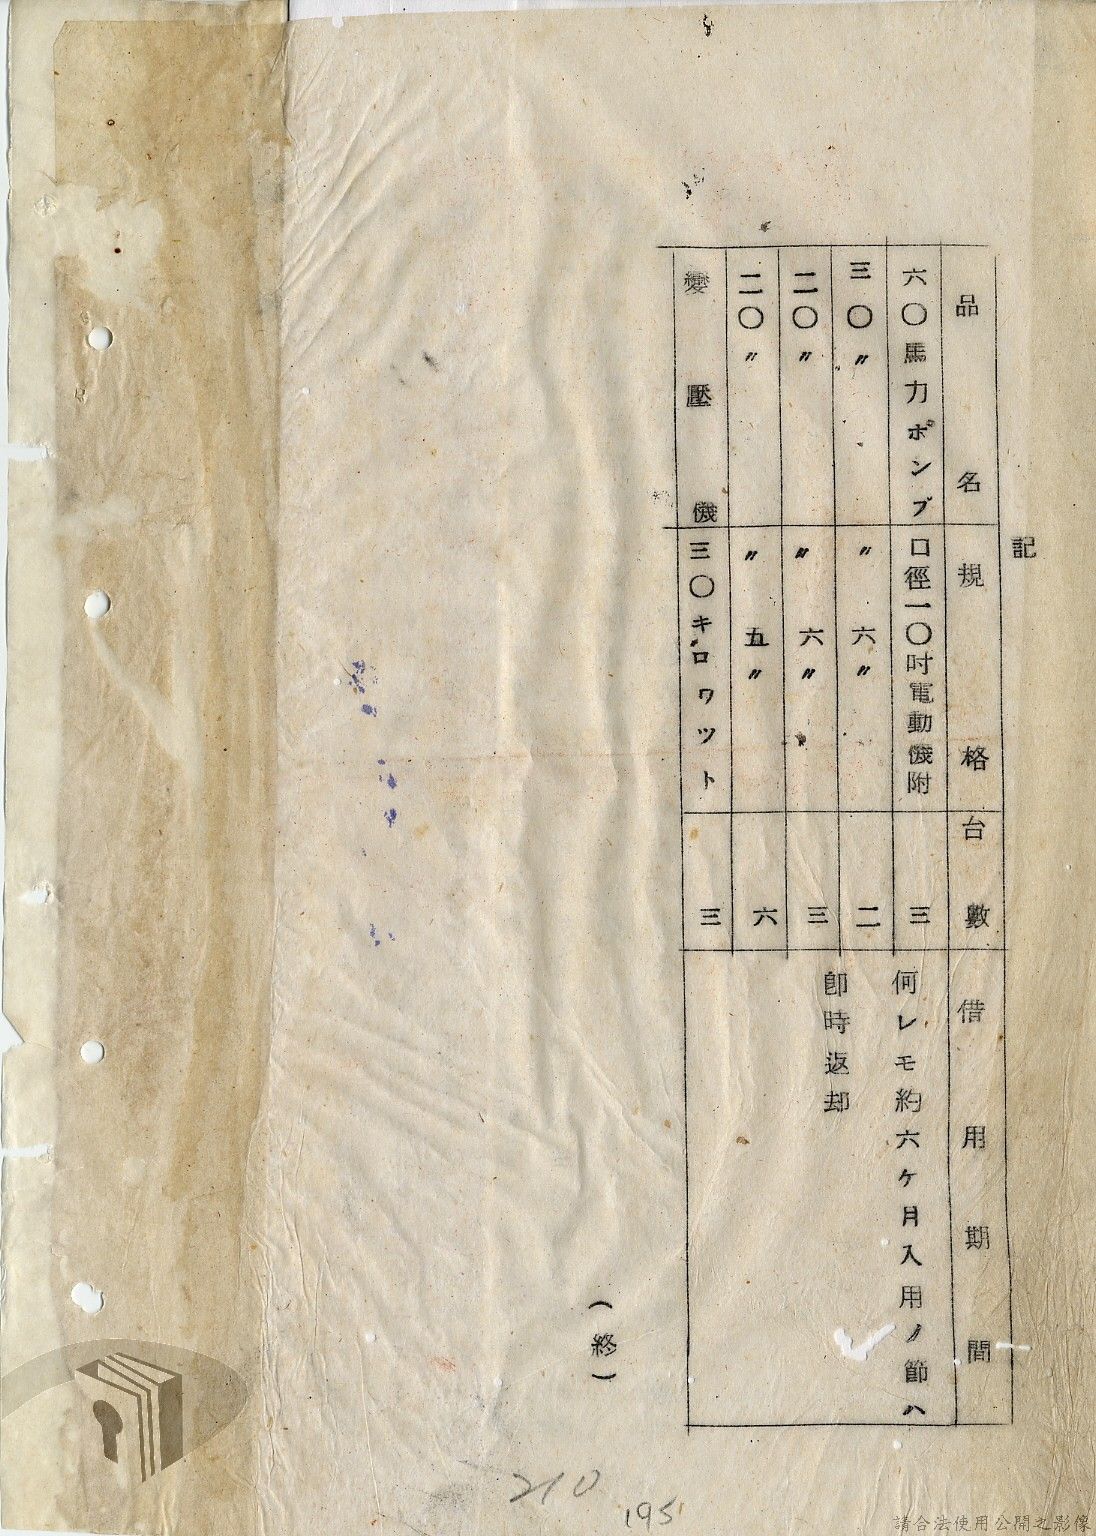 記
品名 規格 台數 借用期間
六〇馬力ポンプ 口徑一〇吋電動機附 三 何レモ約六ケ月入用ノ節ハ
三〇〃 〃六〃 二
即時返却
二〇〃 〃六〃 三
二〇〃 〃五〃 六
變壓機 三〇キロワツト 三
(終)
210
195
請合法使用公開之影像